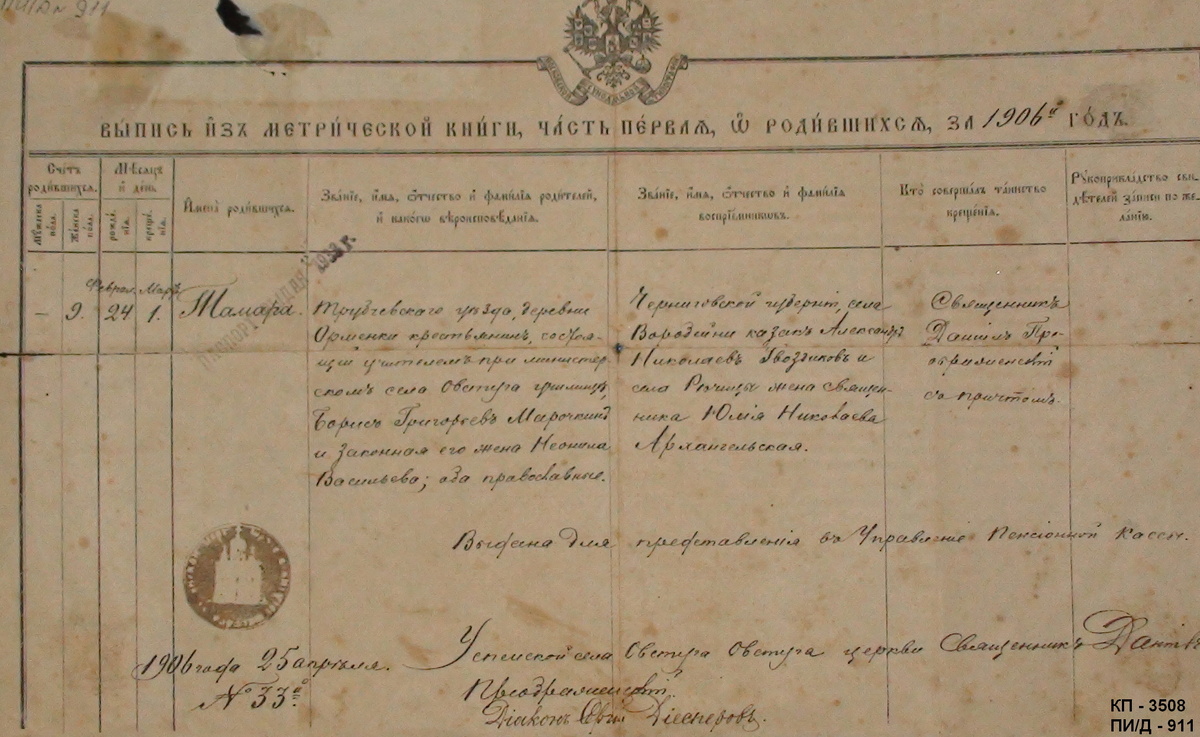 ПИ/Д 911
ВЫ́ПИСЬ И҆ЗЪ МЕТРИ́ЧЕСКОЙ КНИ́ГИ, ЧА́СТЬ ПЕ́РВАѦ, Ѡ҆ РОДИ́ВШИХСѦ, ЗА 1906й ГО́ДЪ.
Сче́тъ роди́вшихсѧ.
Мѣ́сѧцъ и҆ де́нь
Мꙋ́жеска по́ла.
Же́нска по́ла.
рожде́нїѧ.
креще́нїѧ.
И҆мена̀ роди́вшихсѧ.
Зва́нїе, и҆́мѧ, ѻ҆́тчество и҆ фами́лїѧ роди́телей,
и҆ како́гѡ вѣроисповѣ́данїѧ.
Зва́нїе, и҆́мѧ, ѻ҆́тчество и҆ фами́лїѧ
воспрїе́мникѡвъ.
Кто̀ соверша́лъ та́инство
креще́нїѧ.
Рꙋкоприкла́дство сви-
дѣ́телей за́писи по же-
ла́нїю.
Феврал. Мартъ
– 9. 24 1. Тамара.
Трубчевскаго уѣзда, деревни
Орменки крестьянинъ, состоя-
щій учителемъ при министер-
скомъ села Овстуга училищѣ,
Борисъ Григорьевъ Марочкинъ
и законная его жена Неонила
Васильева; оба православные.
Черниговской губерніи, села
Воробейни казакъ Александръ
Николаевъ Гвоздиковъ и
села Рѣчицы жена священ-
ника Юлія Николаева
Архангельская.
Священникъ
Даніилъ Пре-
ображенскій
съ причтомъ.
Выдана для представленія въ Управленіе Пенсіонной Кассы.
1906 года 25 апрѣля.
№ 33й
Успенской села Овстуга Овстуга церкви Священникъ Даніилъ
Преображенскій.
Діаконъ Діесперовъ.
КП - 3508
ПИ/Д - 911